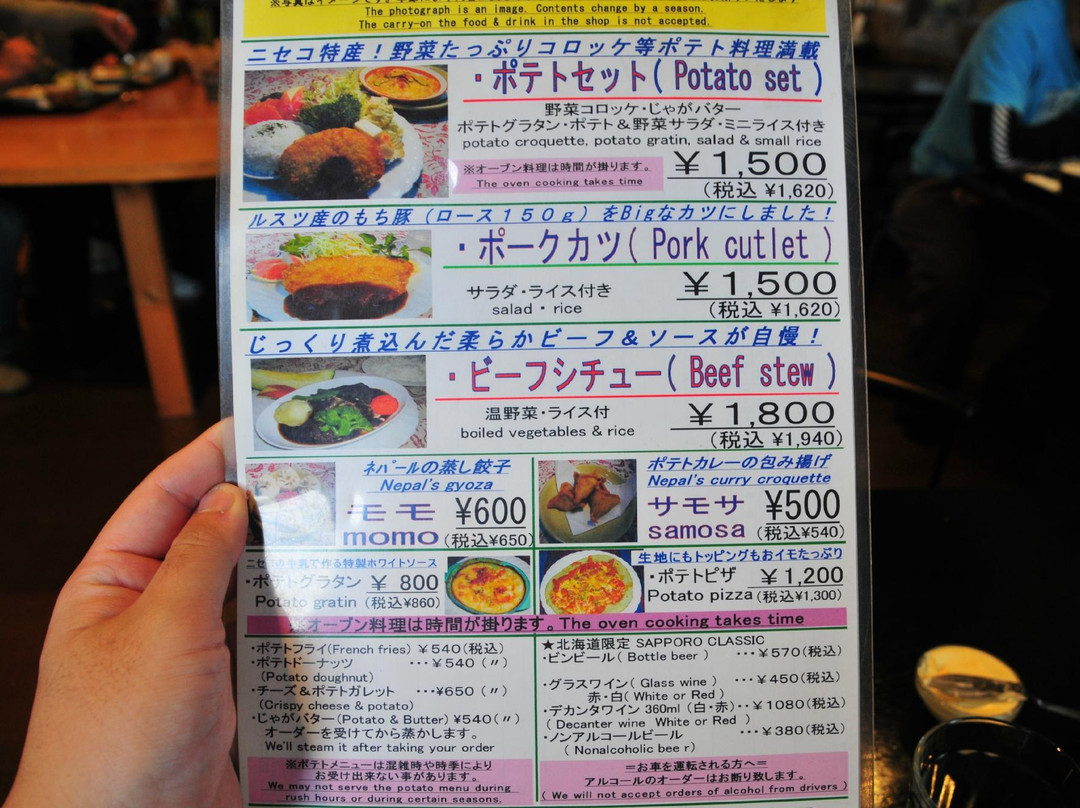 The photograph is an image. Contents change by a season.
The carry-on the food & drink in the shop is not accepted.
ニセコ特産！野菜たっぷりコロッケ等ポテト料理満載
・ポテトセット( Potato set )
野菜コロッケ・じゃがバター
ポテトグラタン・ポテト＆野菜サラダ・ミニライス付き
potato croquette, potato gratin, salad & small rice
※オーブン料理は時間が掛ります。
The oven cooking takes time
￥1,500
(税込 ¥1,620)
ルスツ産のもち豚（ロース１５０ｇ）をBigなカツにしました！
・ポークカツ( Pork cutlet )
サラダ・ライス付き
salad・rice
￥1,500
(税込 ¥1,620)
じっくり煮込んだ柔らかビーフ＆ソースが自慢！
・ビーフシチュー( Beef stew )
温野菜・ライス付
boiled vegetables & rice
￥1,800
(税込 ¥1,940)
ﾈﾊﾟｰﾙの蒸し餃子
Nepal's gyoza
モモ ¥600
momo (税込¥650)
ポテトカレーの包み揚げ
Nepal's curry croquette
サモサ ¥500
samosa (税込¥540)
ニセコの牛乳で作る特製ホワイトソース
・ポテトグラタン ￥ 800
Potato gratin (税込¥860)
生地にもトッピングもおイモたっぷり
・ポテトピザ ￥1,200
Potato pizza (税込¥1,300)
※オーブン料理は時間が掛ります。The oven cooking takes time
・ポテトフライ(French fries) ￥540(税込)
・ポテトドーナッツ ･･･￥540 (〃)
(Potato doughnut)
・チーズ＆ポテトガレット ･･･¥650 (〃)
(Crispy cheese & potato)
・じゃがバター(Potato & Butter) ¥540(〃)
オーダーを受けてから蒸かします。
We'll steam it after taking your order
※ポテトメニューは混雑時や時季により
お受け出来ない事があります。
We may not serve the potato menu during
rush hours or during certain seasons.
★北海道限定 SAPPORO CLASSIC
・ビンビール( Bottle beer ) ･･･￥570(税込)
・グラスワイン( Glass wine ) ･･･￥450(税込)
赤・白( White or Red )
・デカンタワイン 360ml (白・赤)･･￥1080(税込)
( Decanter wine White or Red )
・ノンアルコールビール ･･･￥380(税込)
( Nonalcoholic bee r)
＝お車を運転される方へ＝
アルコールのオーダーはお断り致します。
( We will not accept orders of alcohol from drivers )